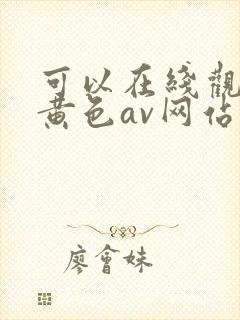 可以在线觀
黄色av网佔
廖會妹